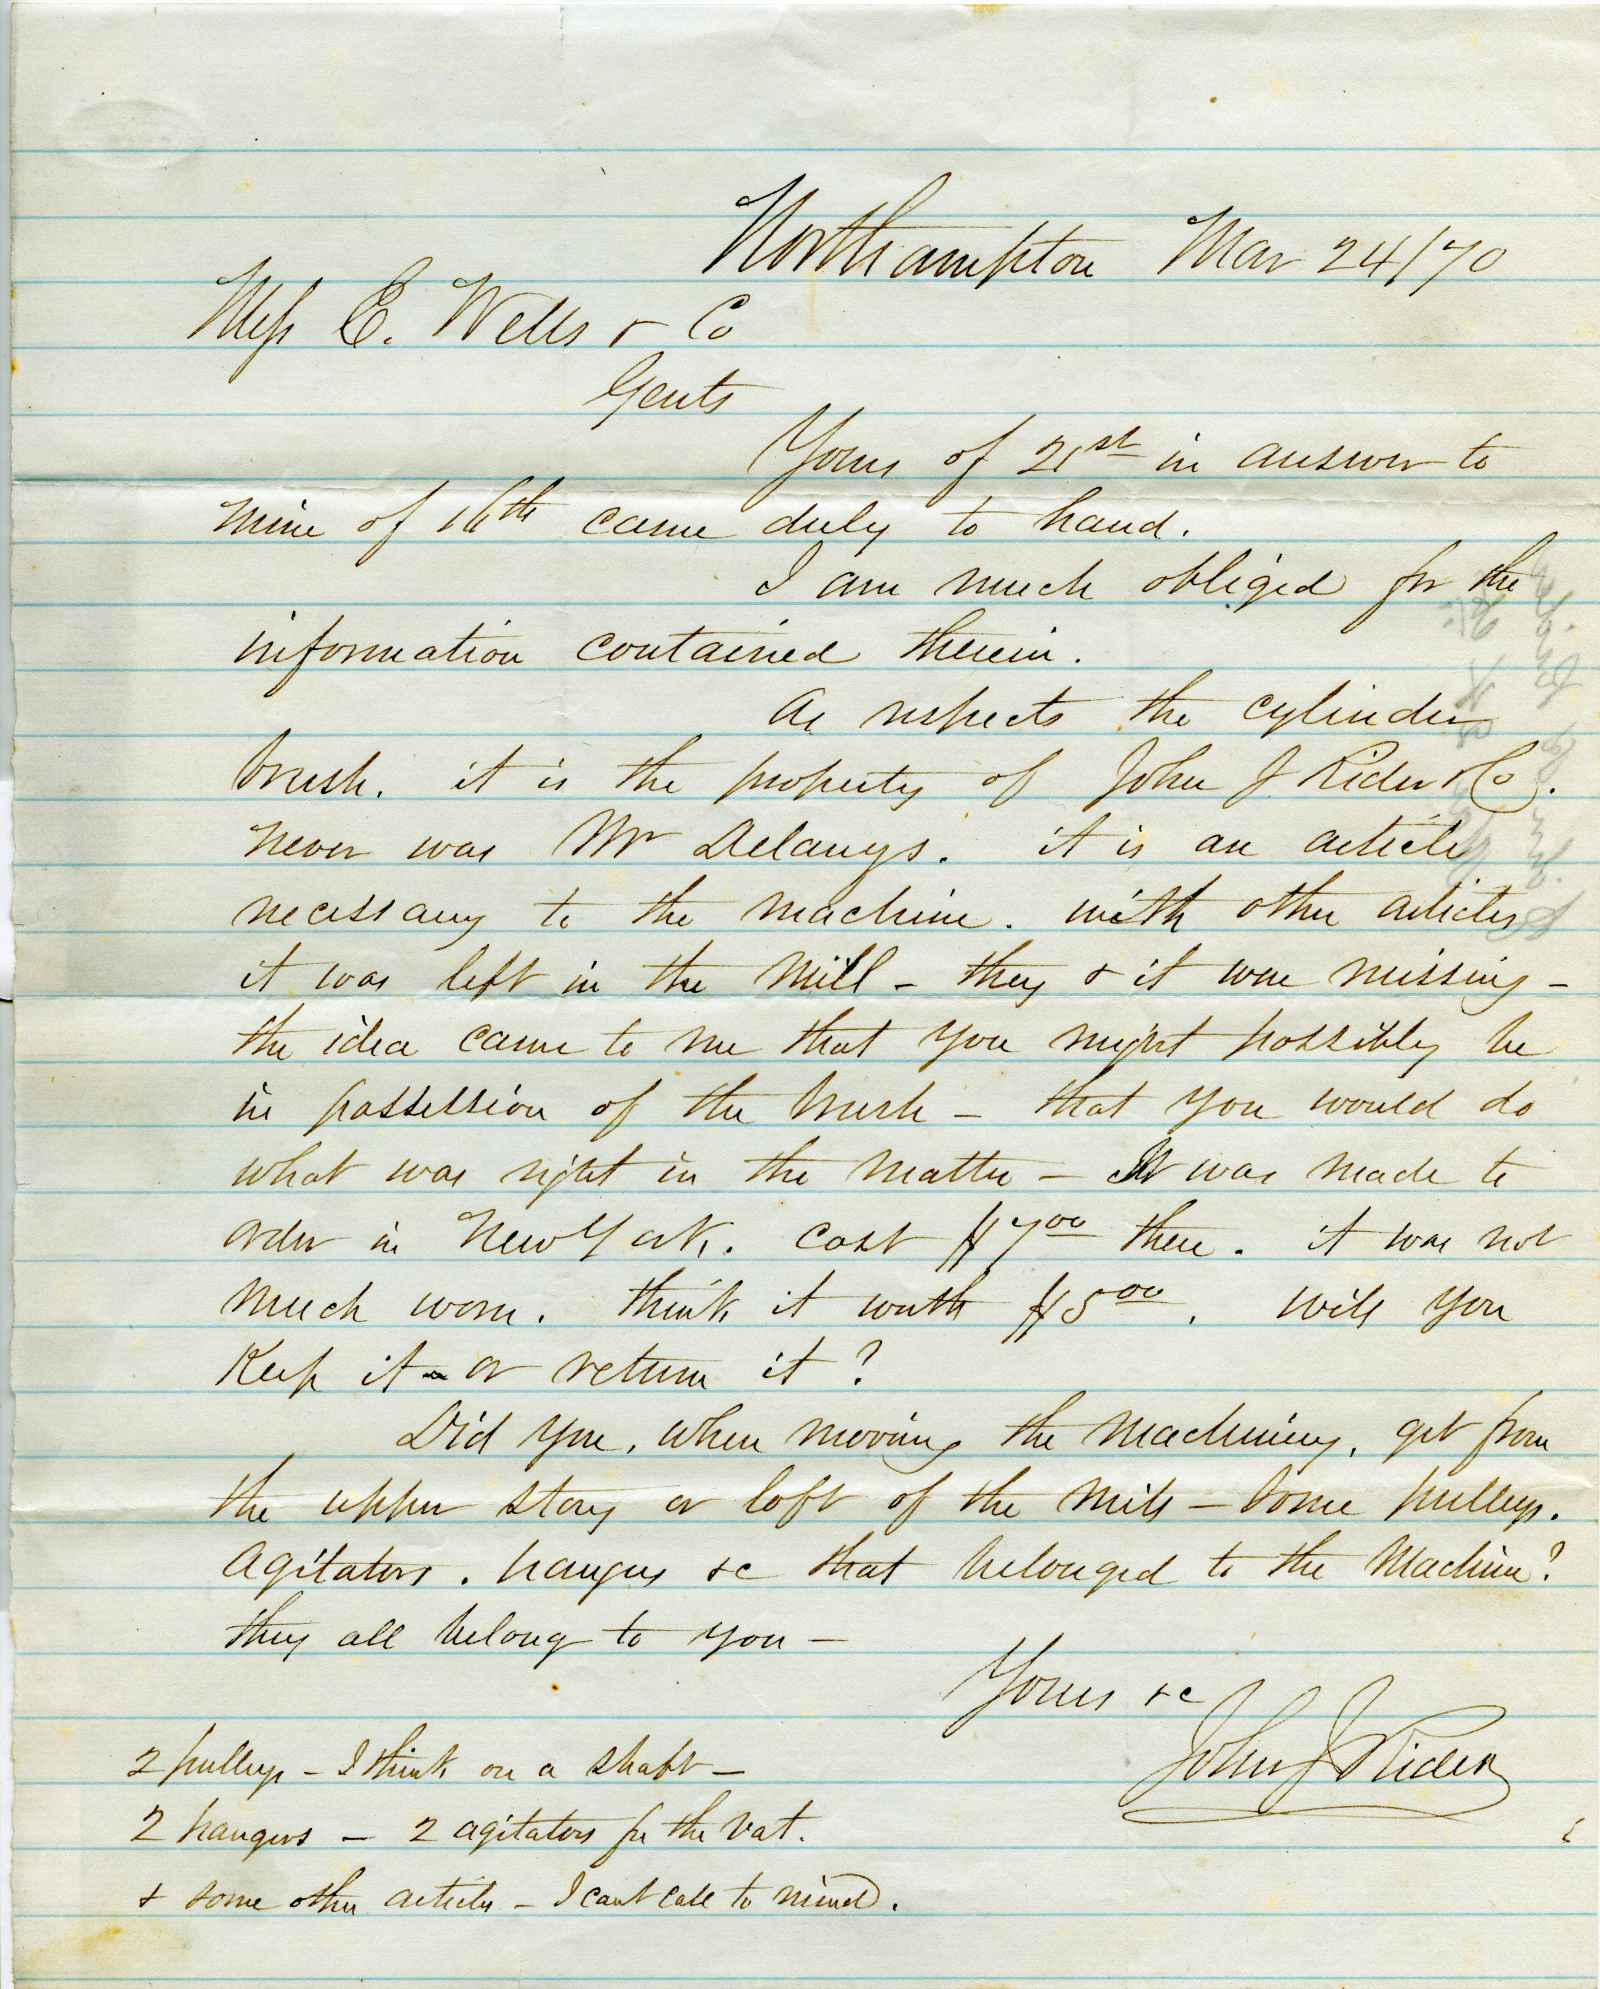 Northampton Mar 24/70
Mess E. Wells & Co
Gents
Yours of 21st in answer to
mine of 16th came duly to hand.
I am much obliged for the
information contained therein.
As respects the cylinder
brush. it is the property of John J Rider & Co.
never was Mr Delanys. it is an article
necessary to the machine. with other articles
it was left in the Mill - they & it were missing -
the idea came to me that you might possibly be
in possession of the brush - that you would do
what was right in the matter - It was made to
order in New York. cost $7.00 there. it was not
much worn. think it worth $5.00. will you
keep it - or return it?
Did you, when moving the machinery, get from
the upper story or loft of the mill - some pulleys.
agitators. hangers &c that belonged to the Machine?
they all belong to you -
Yours &c
John J Rider
2 pulleys - I think on a shaft -
2 hangers - 2 agitators for the vat.
& some other articles - I cant call to mind.